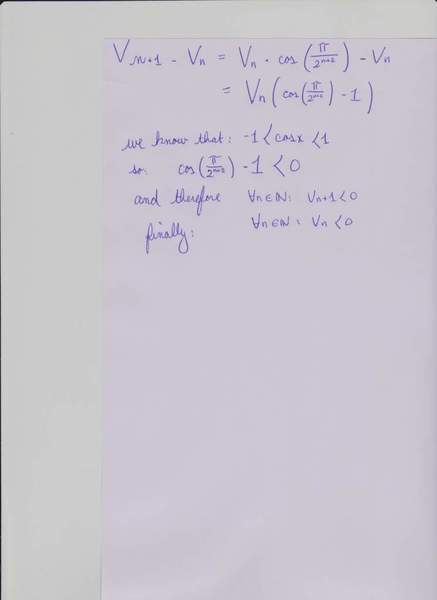 V_{n+1} - V_n = V_n · cos(π/2^{n+2}) - V_n
= V_n (cos(π/2^{n+2}) - 1)
we know that: -1 < cosx < 1
so: cos(π/2^{n+2}) - 1 < 0
and therefore ∀n∈ℕ: V_{n+1} < 0
finally: ∀n∈ℕ: V_n < 0